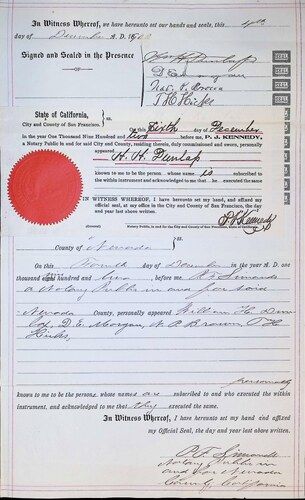 In Witness Whereof, we have hereunto set our hands and seals, this 4th
day of December A. D. 190
Signed and Sealed in the Presence
SEAL
H. H. Dunlap
SEAL
D. E. Morgan
SEAL
Nat. P. Brown
SEAL
T H Hicks
SEAL
State of California,
City and County of San Francisco.
On this Sixth day of December
in the year One Thousand Nine Hundred and two before me, P. J. KENNEDY,
a Notary Public in and for said City and County, residing therein, duly commissioned and sworn, personally
appeared H. H. Dunlap
known to me to be the person whose name is subscribed to the
within instrument and acknowledged to me that he executed the same
IN WITNESS WHEREOF, I have hereunto set my hand, and affixed my
official seal, at my office in the City and County of San Francisco, the day and
year last above written.
P J Kennedy
Notary Public, in and for the City and County of San Francisco, State of California.
County of Nevada
On this Fourth day of December in the year A. D. one
thousand hundred and two before me, P. F. Simonds
a Notary Public in and for said
Nevada County, personally appeared William H.
D. E. Morgan, N. P. Brown T H
Hicks,
personally
known to me to be the persons, whose names are subscribed to and who executed the within
instrument, and acknowledged to me that they executed the same.
In Witness Whereof, I have hereunto set my hand and affixed
my Official Seal, the day and year last above written.
P. F. Simonds
Notary Public in
and for Nevada
County California